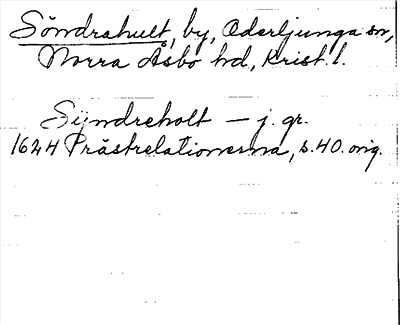 Söndrahult, by, Oderljunga sn,
Norra Åsbo hd, Krist. l.
Syndreholt — j. gr.
1624 Prästrelationerna, s. 40. orig.